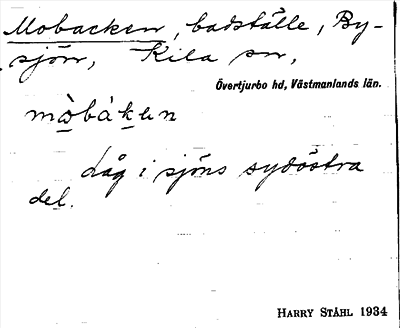 Mobacken, badställe, By-
sjön, Kila sn,
Övertjurbo hd, Västmanlands län.
mo̱̊bàḵen
Låg i sjöns sydöstra
del.
HARRY STÅHL 1934